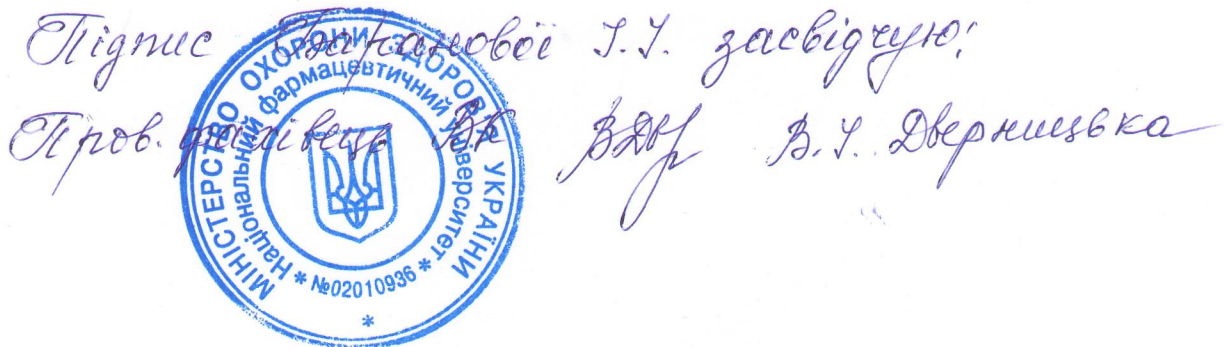 Підпис Баранової І.І. засвідчую:
Пров. фахівець ВК В.І. Дверницька
МІНІСТЕРСТВО ОХОРОНИ ЗДОРОВ'Я УКРАЇНИ
Національний фармацевтичний університет
* №02010936 *
*